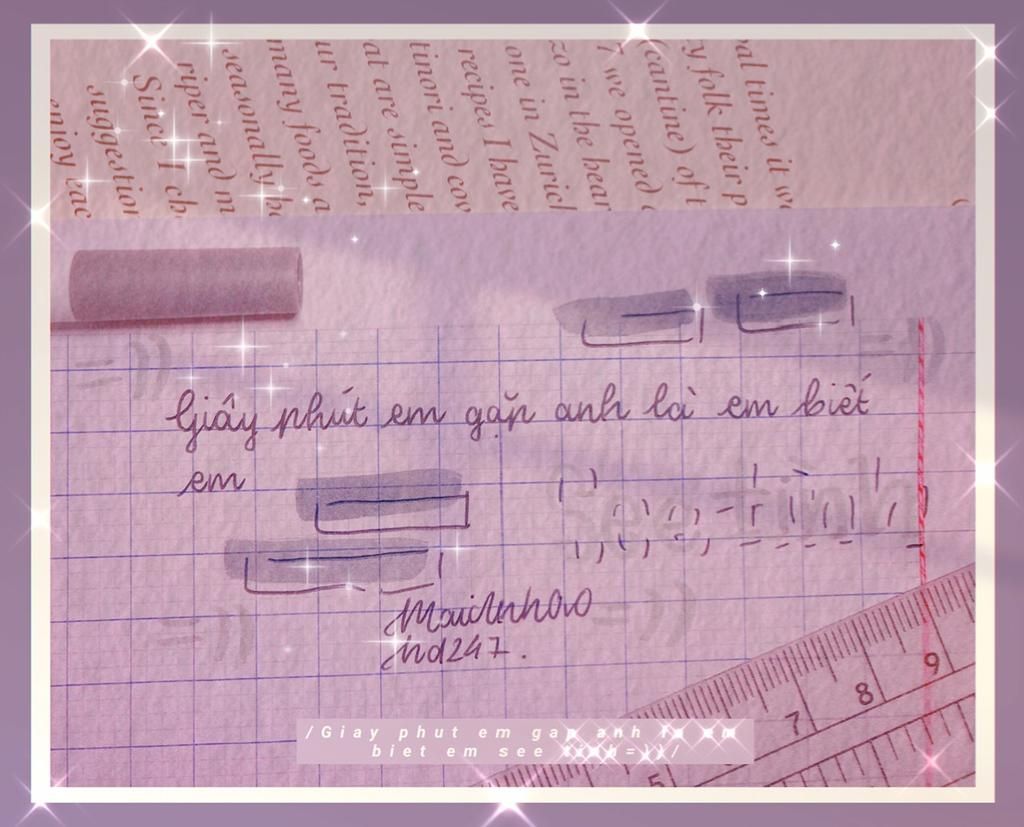 val times it w
y folk their p
(cantine) of t
we opened
zo in the hear
one in Zuricl
recipes I have
tinori and cov
at are simple
ur tradition,
many foods a
seasonally
riper and m
Since I ch
suggestion
enjoy eac
=))
=))
Giây phút em gặp anh là em biết
em
See tình
=))
=))
MaiAnhĐào
nd247.
9
8
7
5
/Giay phut em gap anh la em
biet em see tinh=))/